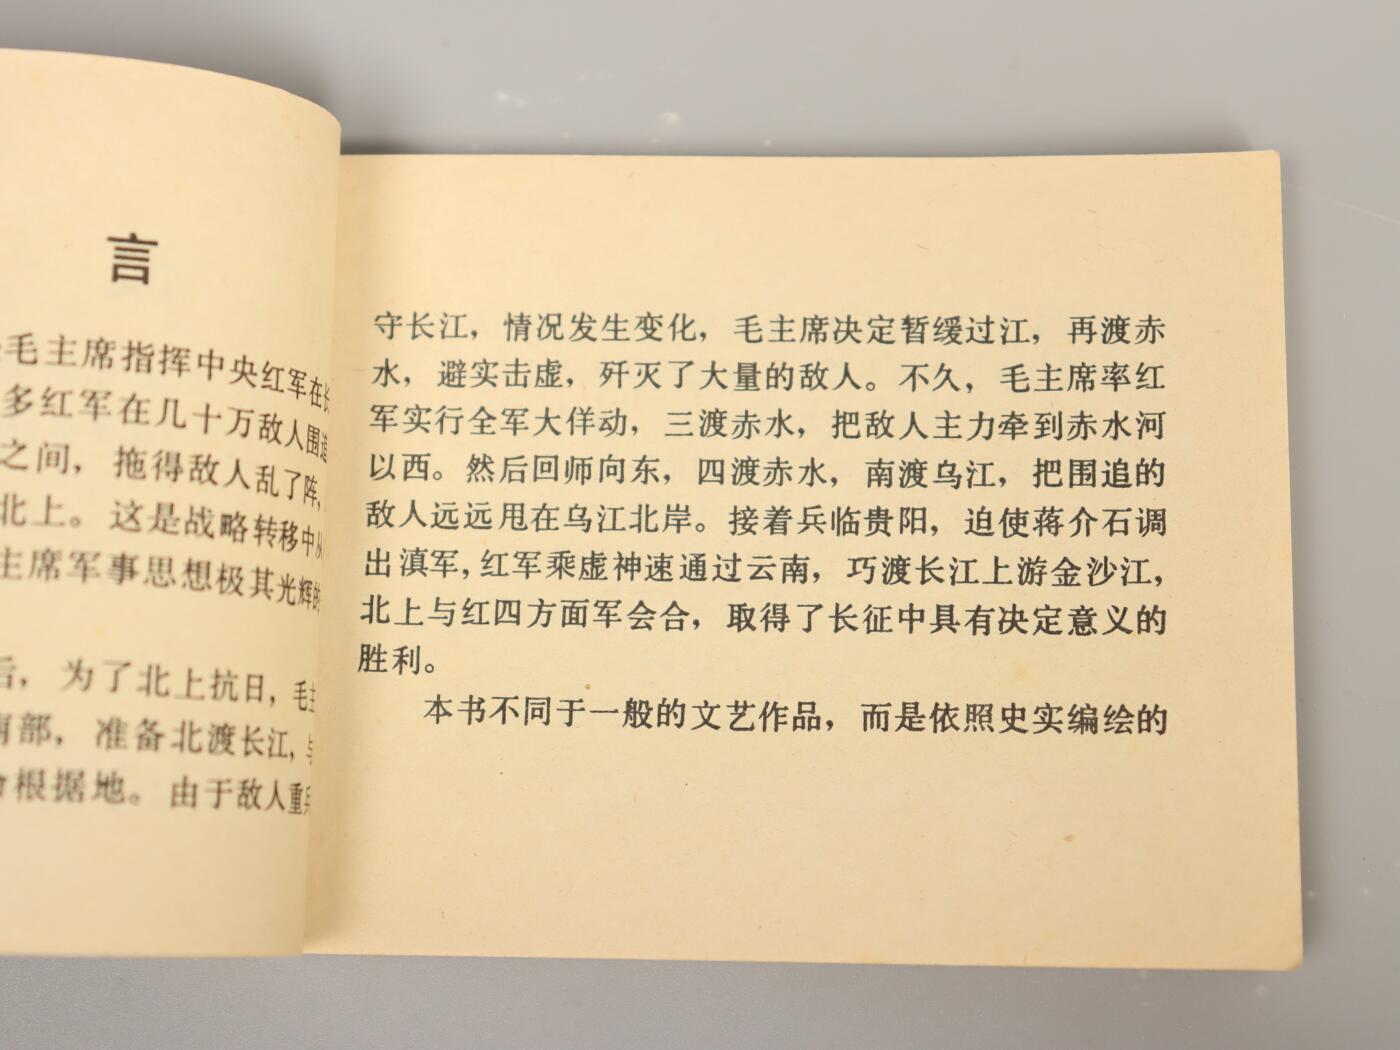 言
毛主席指挥中央红军在长
多红军在几十万敌人围追
之间，拖得敌人乱了阵，
北上。这是战略转移中从
主席军事思想极其光辉的
后，为了北上抗日，毛主
南部，准备北渡长江，与
根据地。由于敌人重兵
守长江，情况发生变化，毛主席决定暂缓过江，再渡赤
水，避实击虚，歼灭了大量的敌人。不久，毛主席率红
军实行全军大佯动，三渡赤水，把敌人主力牵到赤水河
以西。然后回师向东，四渡赤水，南渡乌江，把围追的
敌人远远甩在乌江北岸。接着兵临贵阳，迫使蒋介石调
出滇军，红军乘虚神速通过云南，巧渡长江上游金沙江，
北上与红四方面军会合，取得了长征中具有决定意义的
胜利。
本书不同于一般的文艺作品，而是依照史实编绘的